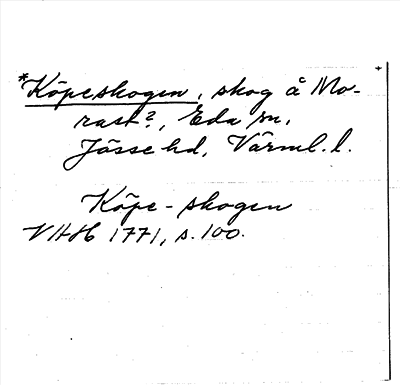 *Köpeskogen, skog å Mo-
rast?, Eda sn,
Jösse hd, Värml. l.
Köpe-skogen
VHH 1771, s. 100.